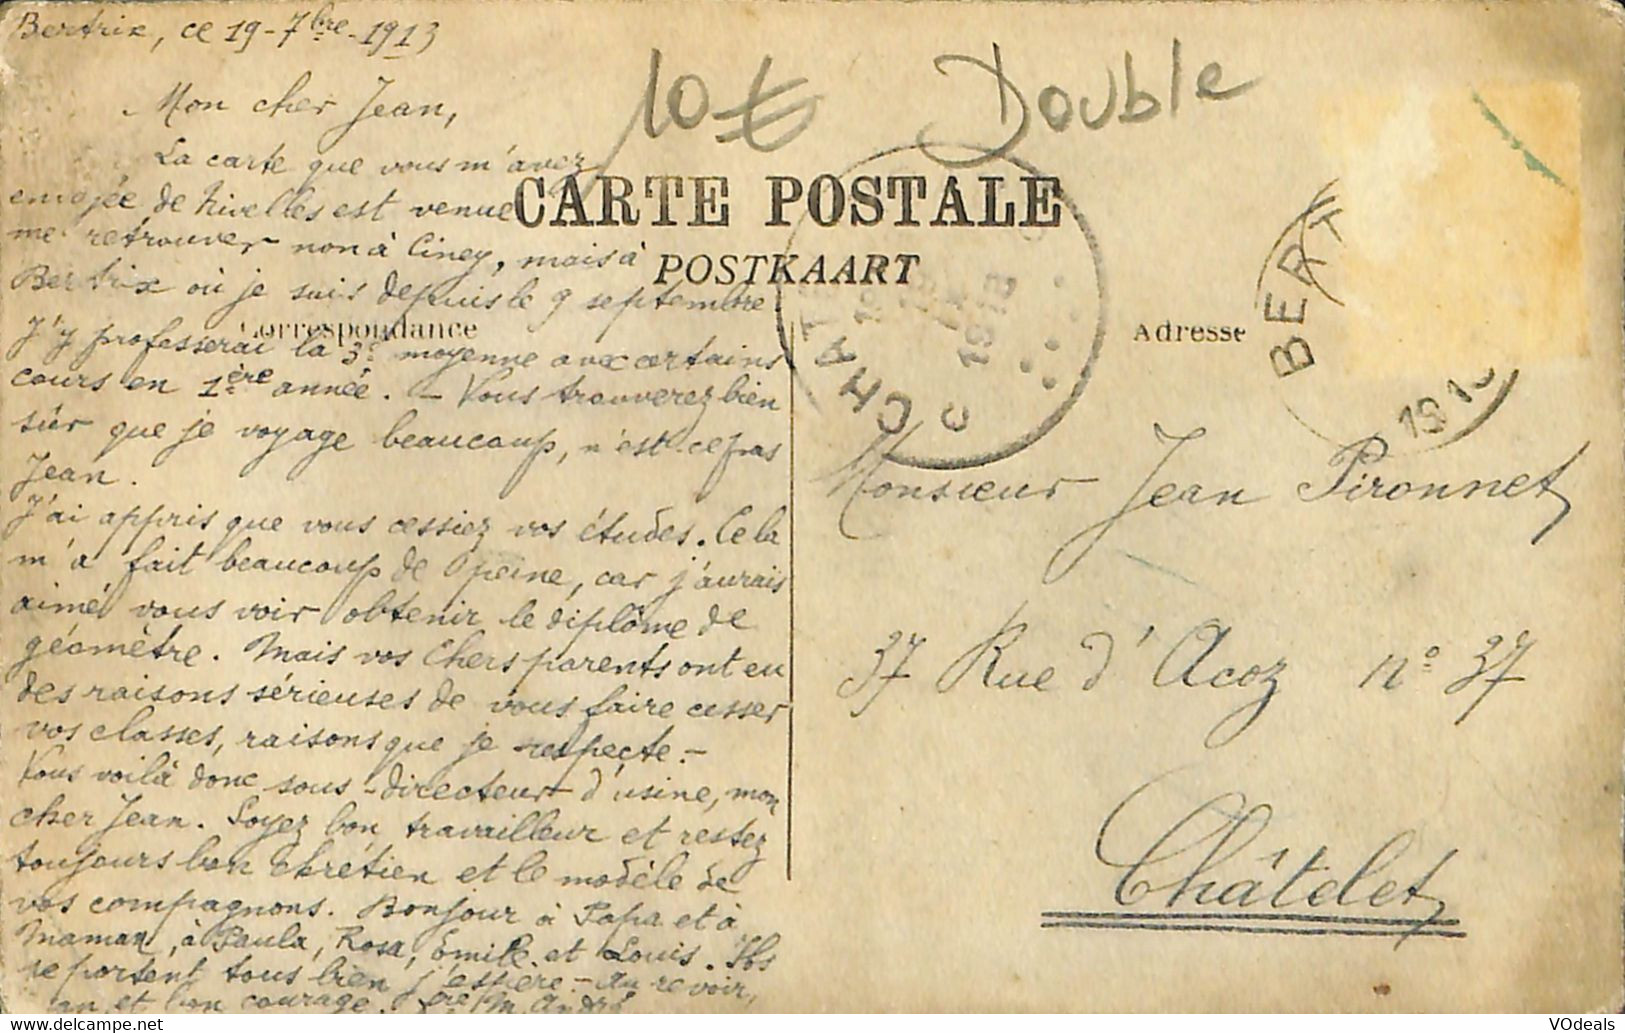 Bertrix, ce 19-7bre-1913
Mon cher Jean,
La carte que vous m'avez
envoyée de Nivelles est venue
me retrouver non à Ciney, mais à
Bertrix où je suis depuis le 9 septembre
J'y professerai la 3e moyenne avec certains
cours en 1ère année. - Vous trouverez bien
sûr que je voyage beaucoup, n'est-ce pas
Jean.
J'ai appris que vous cessiez vos études. Cela
m'a fait beaucoup de peine, car j'aurais
aimé vous voir obtenir le diplôme de
géomètre. Mais vos chers parents ont eu
des raisons sérieuses de vous faire cesser
vos classes, raisons que je respecte. -
Vous voilà donc sous-directeur d'usine, mon
cher Jean. Soyez bon travailleur et restez
toujours bon chrétien et le modèle de
vos compagnons. Bonjour à Papa et à
Maman, à Paula, Rosa, Emile et Louis. Ils
se portent tous bien j'espère - Au revoir,
et bon courage. Fère M. André
10 €
Double
CARTE POSTALE
POSTKAART
Correspondance
Adresse
CHAT
1913
BERT
191
Monsieur Jean Pironnet
37 Rue d'Acoz n° 37
Châtelet
VOdeals